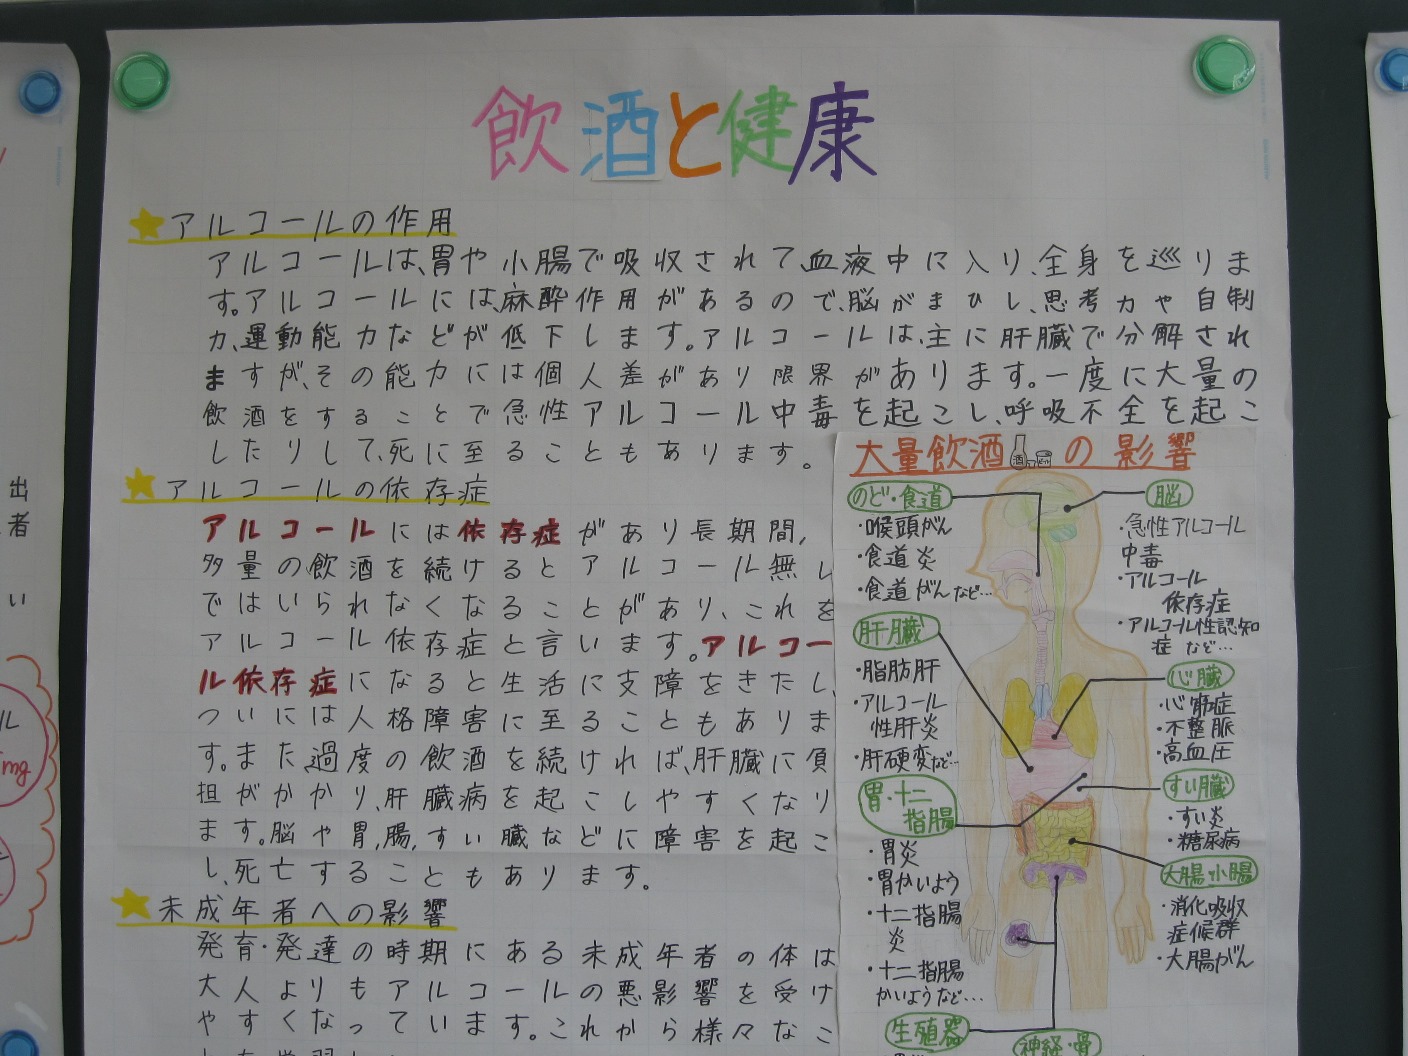 飲酒と健康
アルコールの作用
アルコールは、胃や小腸で吸収されて、血液中に入り、全身を巡りま
す。アルコールには、麻酔作用があるので、脳がまひし、思考力や自制
力、運動能力などが低下します。アルコールは、主に肝臓で分解され
ますが、その能力には個人差があり限界があります。一度に大量の
飲酒をすることで急性アルコール中毒を起こし、呼吸不全を起こ
したりして、死に至ることもあります。
アルコールの依存症
アルコールには依存症があり長期間,
多量の飲酒を続けるとアルコール無し
ではいられなくなることがあり、これを
アルコール依存症と言います。アルコー
ル依存症になると生活に支障をきたし、
ついには人格障害に至ることもありま
す。また、過度の飲酒を続ければ、肝臓に負
担がかかり、肝臓病を起こしやすくなり
ます。脳や胃,腸,すい臓などに障害を起こ
し、死亡することもあります。
未成年者への影響
発育・発達の時期にある未成年者の体は
大人よりもアルコールの悪影響を受け
やすくなっています。これから様々なこ
大量飲酒の影響
のど・食道
・喉頭がん
・食道炎
・食道がんなど…
肝臓
・脂肪肝
・アルコール
性肝炎
・肝硬変など…
胃・十二
指腸
・胃炎
・胃かいよう
・十二指腸
炎
・十二指腸
かいようなど…
生殖器
脳
・急性アルコール
中毒
・アルコール
依存症
・アルコール性認知
症など…
心臓
・心筋症
・不整脈
・高血圧
すい臓
・すい炎
・糖尿病
大腸・小腸
・消化吸収
症候群
・大腸がん
神経・骨
出
者
い
mg